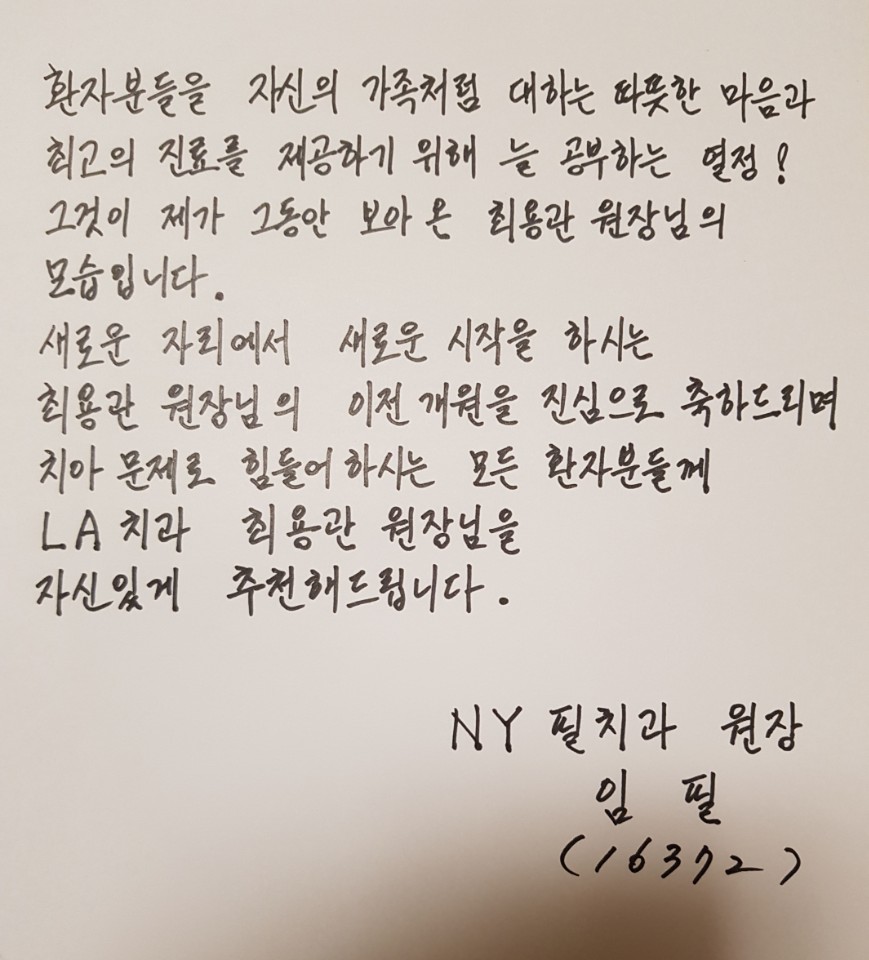 환자분들을 자신의 가족처럼 대하는 따뜻한 마음과
최고의 진료를 제공하기 위해 늘 공부하는 열정!
그것이 제가 그동안 보아 온 최용관 원장님의
모습입니다.
새로운 자리에서 새로운 시작을 하시는
최용관 원장님의 이전 개원을 진심으로 축하드리며
치아 문제로 힘들어 하시는 모든 환자분들께
LA 치과 최용관 원장님을
자신있게 추천해드립니다.
NY 필치과 원장
임 필
(16372)